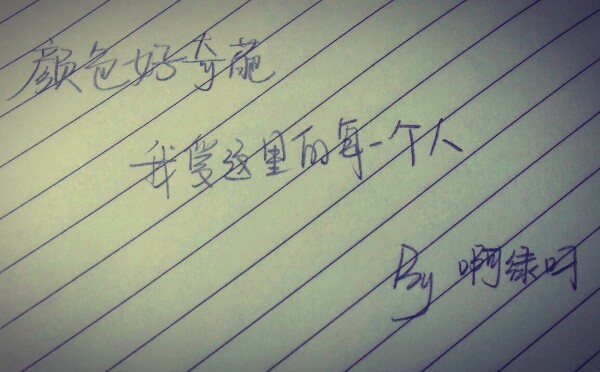 颜色好奇葩
我爱这里的每一个人
By 啊绿吖